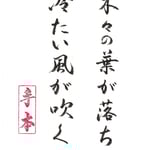 木々の葉が落ち
冷たい風が吹く
手本